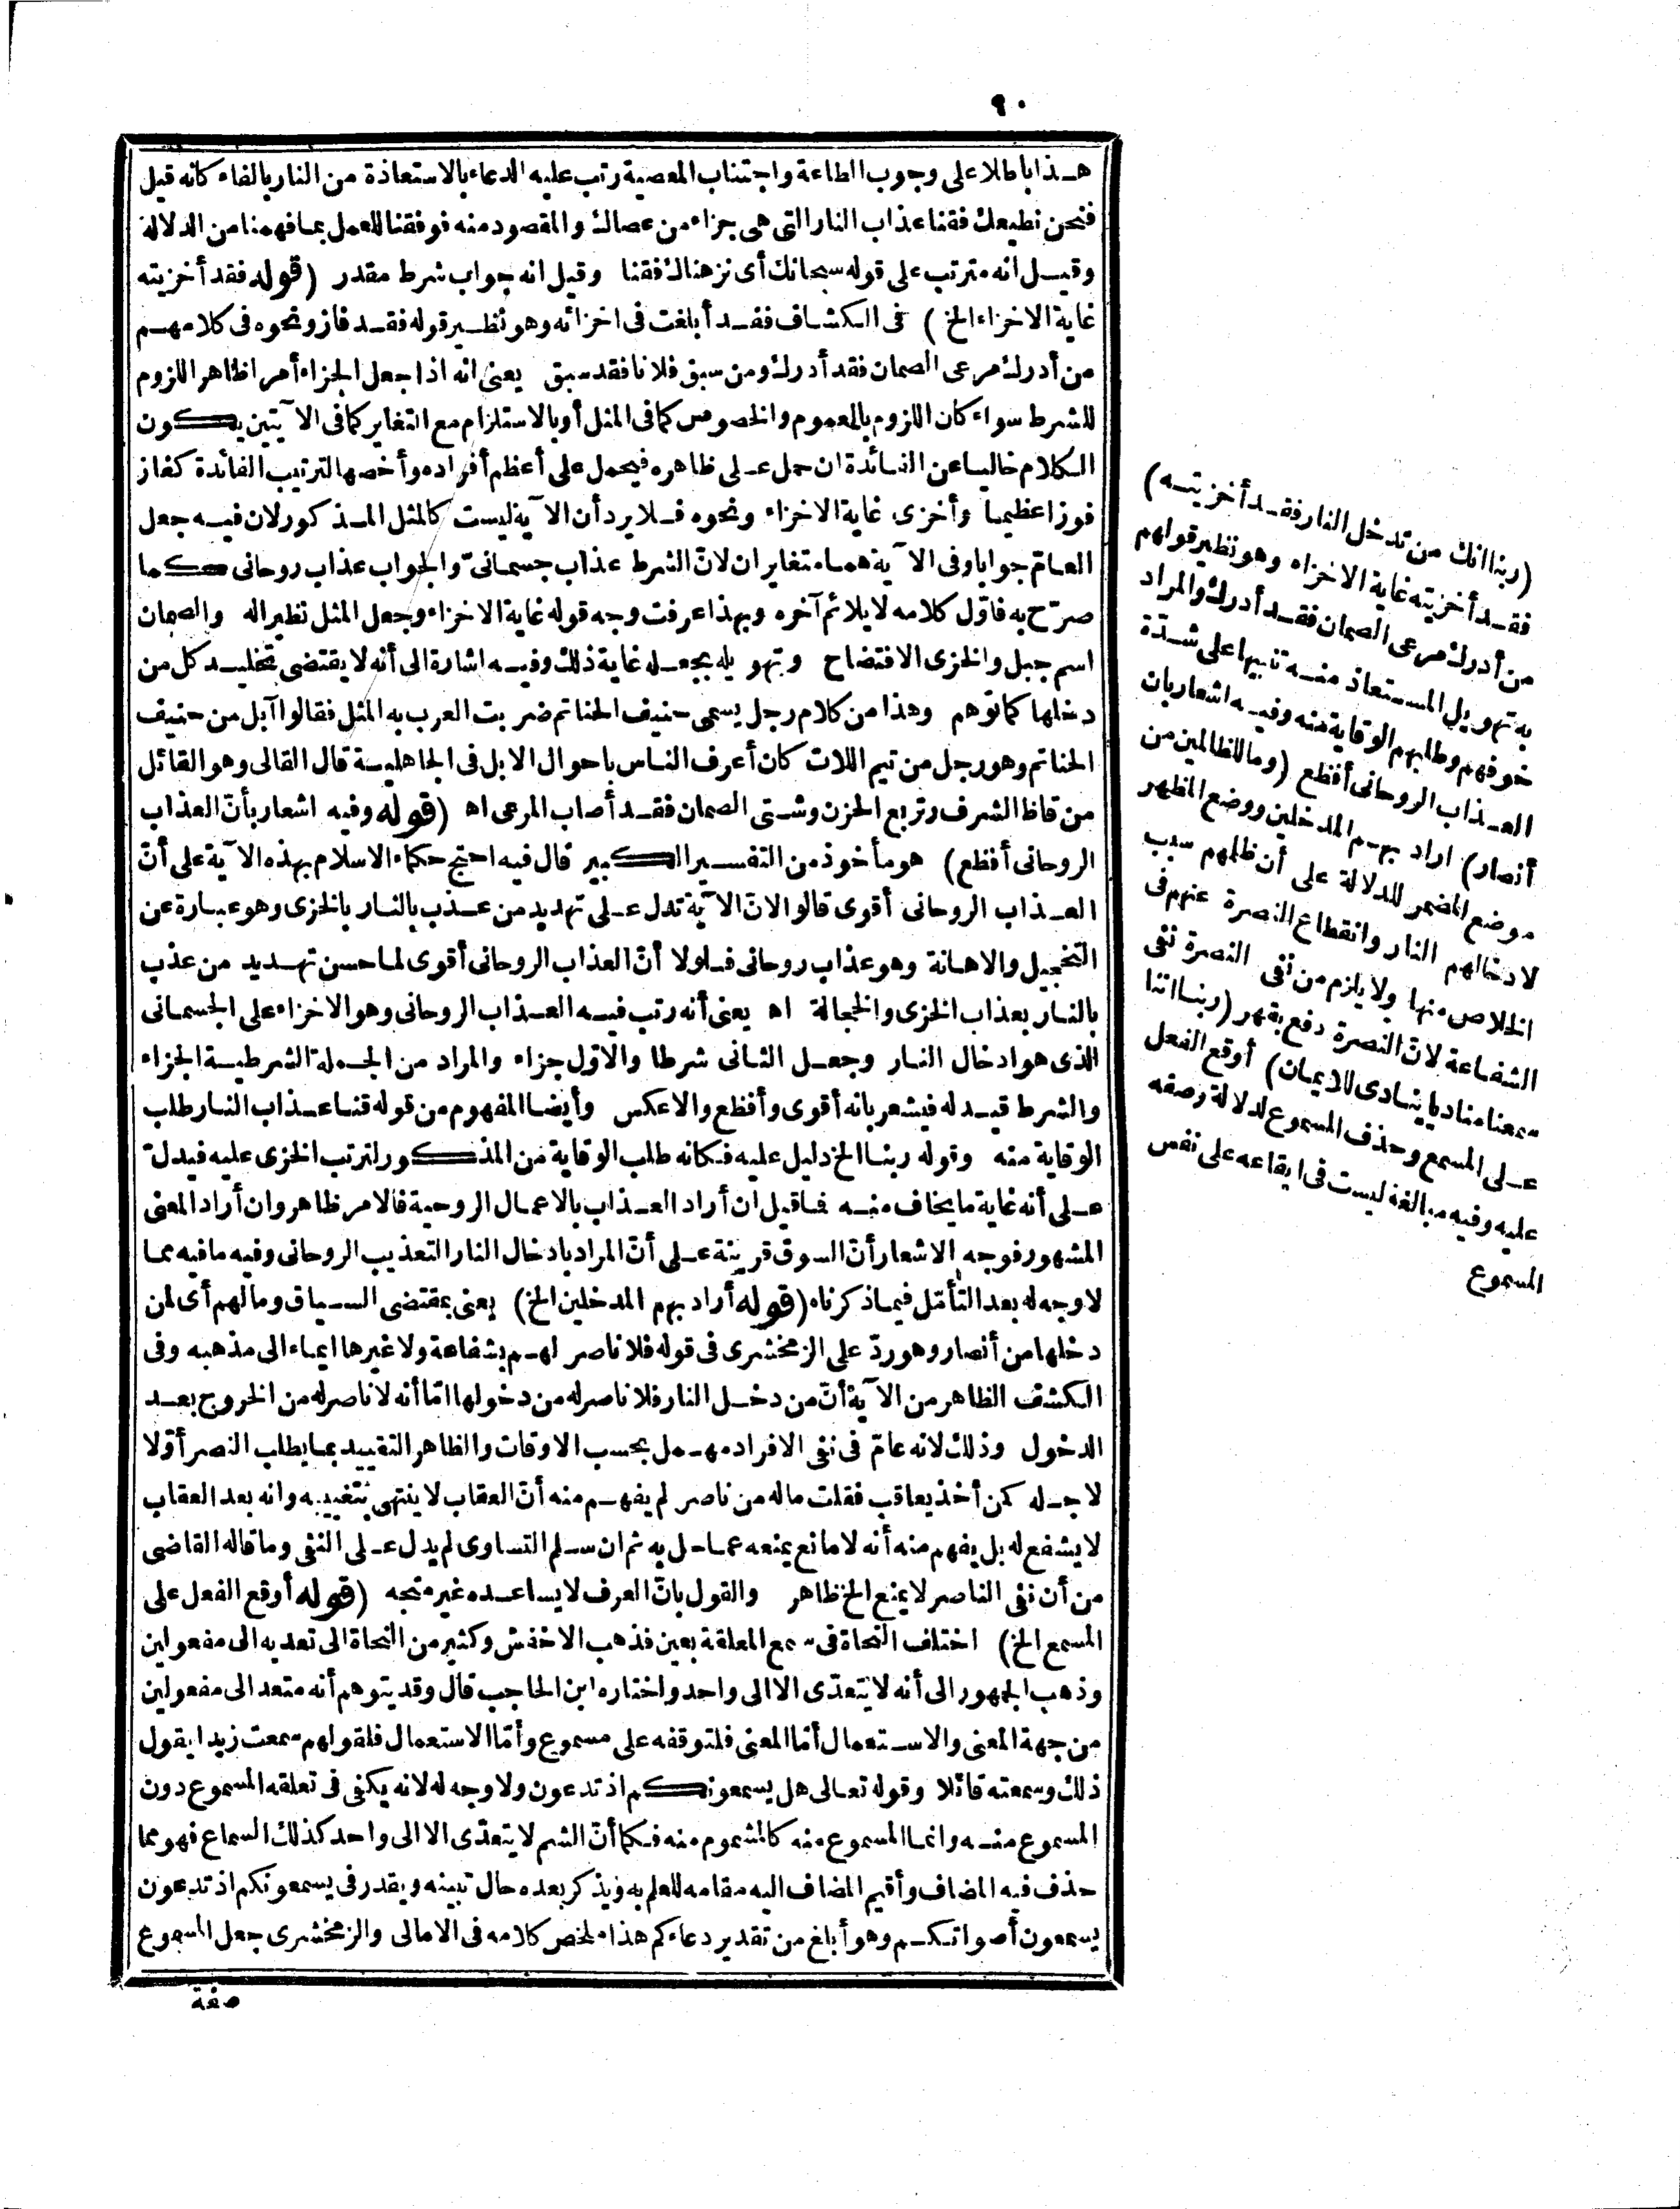 ٩٠
هذا باطلا على وجوب الطاعة واجتناب المعصية رتب عليه الدعاء بالاستعاذة من النار بالفاء كأنه قيل
فنحن نطيعك فقنا عذاب النار التى هى جزاء من عصاك والمقصود منه فوفقنا للعمل بما فهمنا من الدلالة
وقيل انه مترتب على قوله سبحانك أى نزهناك فقنا وقيل انه جواب شرط مقدر (قوله فقد أخزيته
غاية الاخزاء الخ) فى الكشاف فقد أبلغت فى اخزائه وهو نظير قوله فقد فاز ونحوه فى كلامهم
من أدرك مرعى الصمان فقد أدرك ومن سبق فلانا فقد سبق يعنى انه اذا جعل الجزاء أمرا ظاهر اللزوم
للشرط سواء كان اللزوم بالعموم والخصوص كما فى المثل أو بالاستلزام مع التغاير كما فى الآيتين يكون
الكلام خاليا عن الفائدة ان حمل على ظاهره فيحمل على أعظم أفراده وأخصها لترتيب الفائدة كفاز
فوزا عظيما وأخزى غاية الاخزاء ونحوه فلا يرد أن الآية ليست كالمثل المذكور لان فيه جعل
العامّ جوابا وفى الآية هما متغايران لانّ الشرط عذاب جسمانىّ والجواب عذاب روحانى كما
صرّح به فاوّل كلامه لا يلائم آخره وبهذا عرفت وجه قوله غاية الاخزاء وجعل المثل نظيرا له والصمان
اسم جبل والخزى الافتضاح وتهويله بجعله غاية ذلك وفيه اشارة الى أنه لا يقتضى تخليد كل من
دخلها كما توهم وهذا من كلام رجل يسمى حنيف الحناتم ضربت العرب به المثل فقالوا آبل من حنيف
الحناتم وهو رجل من تيم اللات كان أعرف الناس باحوال الابل فى الجاهلية قال القالى وهو القائل
من قاظ الشرف وتربع الحزن وشتى الصمان فقد أصاب المرعى اه (قوله وفيه اشعار بأنّ العذاب
الروحانى أفظع) هو مأخوذ من التفسير الكبير قال فيه احتج حكماء الاسلام بهذه الآية على أنّ
العذاب الروحانى أقوى قالوا لانّ الآية تدل على تهديد من عذب بالنار بالخزى وهو عبارة عن
التخجيل والاهانة وهو عذاب روحانى فلولا أنّ العذاب الروحانى أقوى لما حسن تهديد من عذب
بالنار بعذاب الخزى والخجالة اه يعنى أنه رتب فيه العذاب الروحانى وهو الاخزاء على الجسمانى
الذى هو ادخال النار وجعل الثانى شرطا والاوّل جزاء والمراد من الجملة الشرطية الجزاء
والشرط قيد له فيشعر بانه أقوى وأفظع والا عكس وأيضا المفهوم من قوله قنا عذاب النار طلب
الوقاية منه وقوله ربنا الخ دليل عليه فكانه طلب الوقاية من المذكور لترتب الخزى عليه فيدلّ
على أنه غاية ما يخاف منه فما قيل ان أراد العذاب بالاعمال الروحية فالامر ظاهر وان أراد المعنى
المشهور فوجه الاشعار أن السوق قرينة على أنّ المراد بادخال النار التعذيب الروحانى وفيه ما فيه مما
لا وجه له بعد التأمّل فيما ذكرناه (قوله أراد بهم المدخلين الخ) يعنى بمقتضى السياق وما لهم أى لمن
دخلها من أنصار وهو ردّ على الزمخشرى فى قوله فلا ناصر لهم بشفاعة ولا غيرها ايماء الى مذهبه وفى
الكشف الظاهر من الآية أنّ من دخل النار فلا ناصر له من دخولها امّا أنه لا ناصر له من الخروج بعد
الدخول وذلك لانه عامّ فى نفى الافراد مهمل بحسب الاوقات والظاهر التقييد بما يطلب النصر أوّلا
لاجله كمن أخذ يعاقب فقلت ماله من ناصر لم يفهم منه أنّ العقاب لا ينتهى بنفسه وانه بعد العقاب
لا يشفع له بل يفهم منه أنه لا مانع يمنعه عما حل به ثم ان سلم التساوى لم يدل على النفى وما قاله القاضى
من أن نفى الناصر لا يمنع الخ ظاهر والقول بانّ العرف لا يساعده غير متجه (قوله أوقع الفعل على
المسمع الخ) اختلف النحاة فى سمع المعلقة بعين فذهب الاخفش وكثير من النحاة الى تعديه الى مفعولين
وذهب الجمهور الى أنه لا يتعدّى الا الى واحد واختاره ابن الحاجب قال وقد يتوهم أنه متعد الى مفعولين
من جهة المعنى والاستعمال أمّا المعنى فلتوقفه على مسموع وأمّا الاستعمال فلقولهم سمعت زيدا يقول
ذلك وسمعته قائلا وقوله تعالى هل يسمعونكم اذ تدعون ولا وجه له لانه يكفى فى تعلقه المسموع دون
المسموع منه وانما المسموع منه كالمشموم منه فكما أنّ الشم لا يتعدّى الا الى واحد كذلك السماع فهو مما
حذف فيه المضاف وأقيم المضاف اليه مقامه للعلم به ويذكر بعده حال تبينه ويقدر فى يسمعونكم اذ تدعون
يسمعون أصواتكم وهو أبلغ من تقدير دعاءكم هذا ملخص كلامه فى الامالى والزمخشرى جعل المسموع
صفة
(ربنا انك من تدخل النار فقد أخزيته)
فقد أخزيته غاية الاخزاء وهو نظير قولهم
من أدرك مرعى الصمان فقد أدرك والمراد
به تهويل المستعاذ منه تنبيها على شدّة
خوفهم وطلبهم الوقاية منه وفيه اشعار بان
العذاب الروحانى أفظع (وما للظالمين من
أنصار) أراد بهم المدخلين ووضع المظهر
موضع المضمر للدلالة على أن ظلمهم سبب
لادخالهم النار وانقطاع النصرة عنهم فى
الخلاص منها ولا يلزم من نفى النصرة نفى
الشفاعة لان النصرة دفع بقهر (ربنا اننا
سمعنا مناديا ينادى للايمان) أوقع الفعل
على المسمع وحذف المسموع لدلالة وصفه
عليه وفيه مبالغة ليست فى ايقاعه على نفس
المسموع